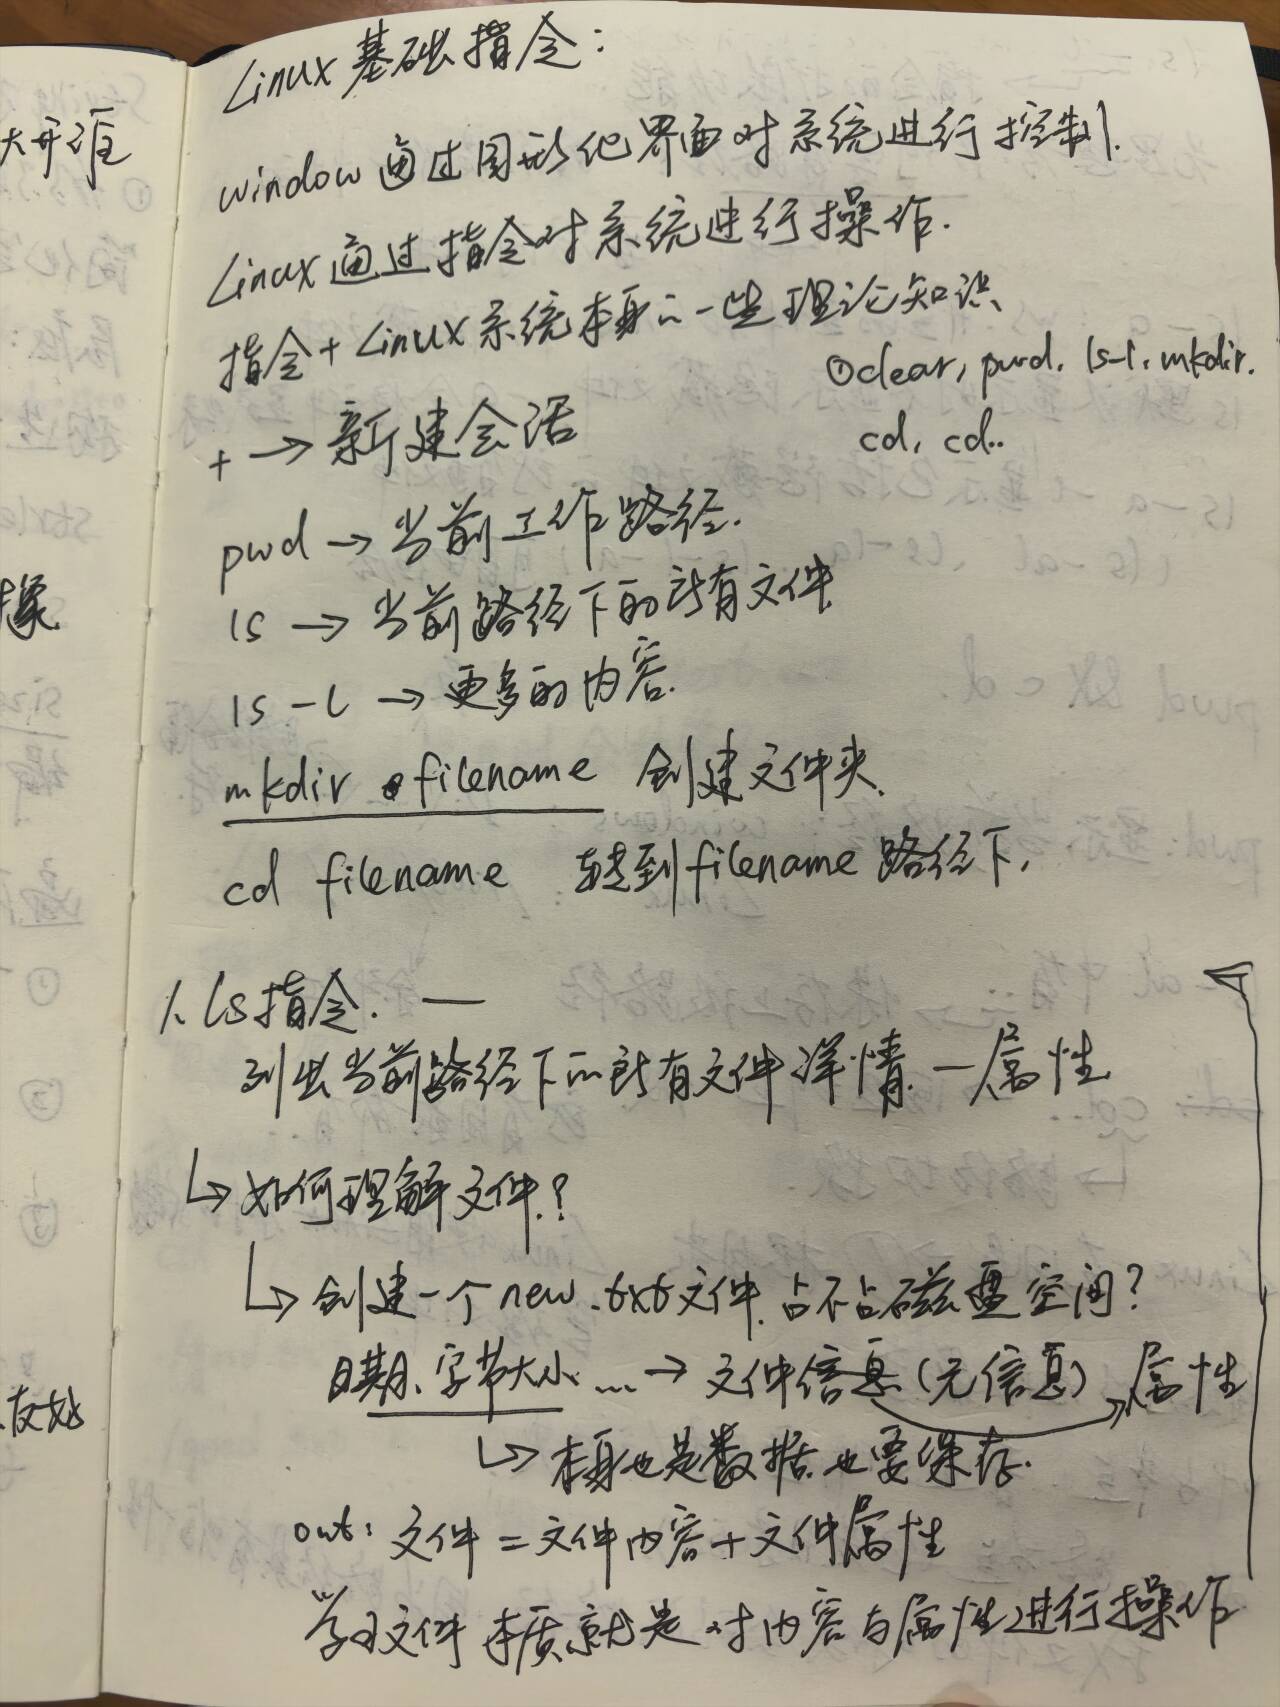 Linux基础指令:
window通过图形化界面对系统进行控制.
Linux通过指令对系统进行操作.
指令+Linux系统本身的一些理论知识
①clear, pwd. ls-l, mkdir.
cd, cd..
+ → 新建会话
pwd → 当前工作路径.
ls → 当前路径下的所有文件
ls -l → 更多的内容.
mkdir filename 创建文件夹.
cd filename 转到filename路径下.
1. ls指令. —
列出当前路径下的所有文件详情. —属性
↳ 如何理解文件?
↳ 创建一个new.txt文件, 占不占磁盘空间?
日期、字节大小 ... → 文件信息(元信息) 属性
↳ 本身也是数据, 也要保存.
out: 文件 = 文件内容 + 文件属性
学习文件 本质就是对内容与属性进行操作
大开
象
友好